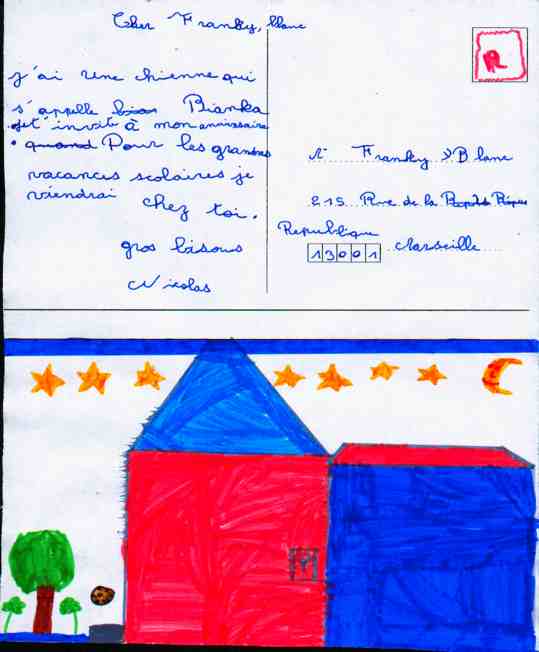 Cher Franky, blanc
j'ai une chienne qui
s'appelle Bianka
jet'invite à mon anniversaire
. quand Pour les grandes
vacances scolaires je
viendrai chez toi.
gros bisous
Nicolas
R
Franky Blanc
215 Rue de la
Republique
13001 Marseille